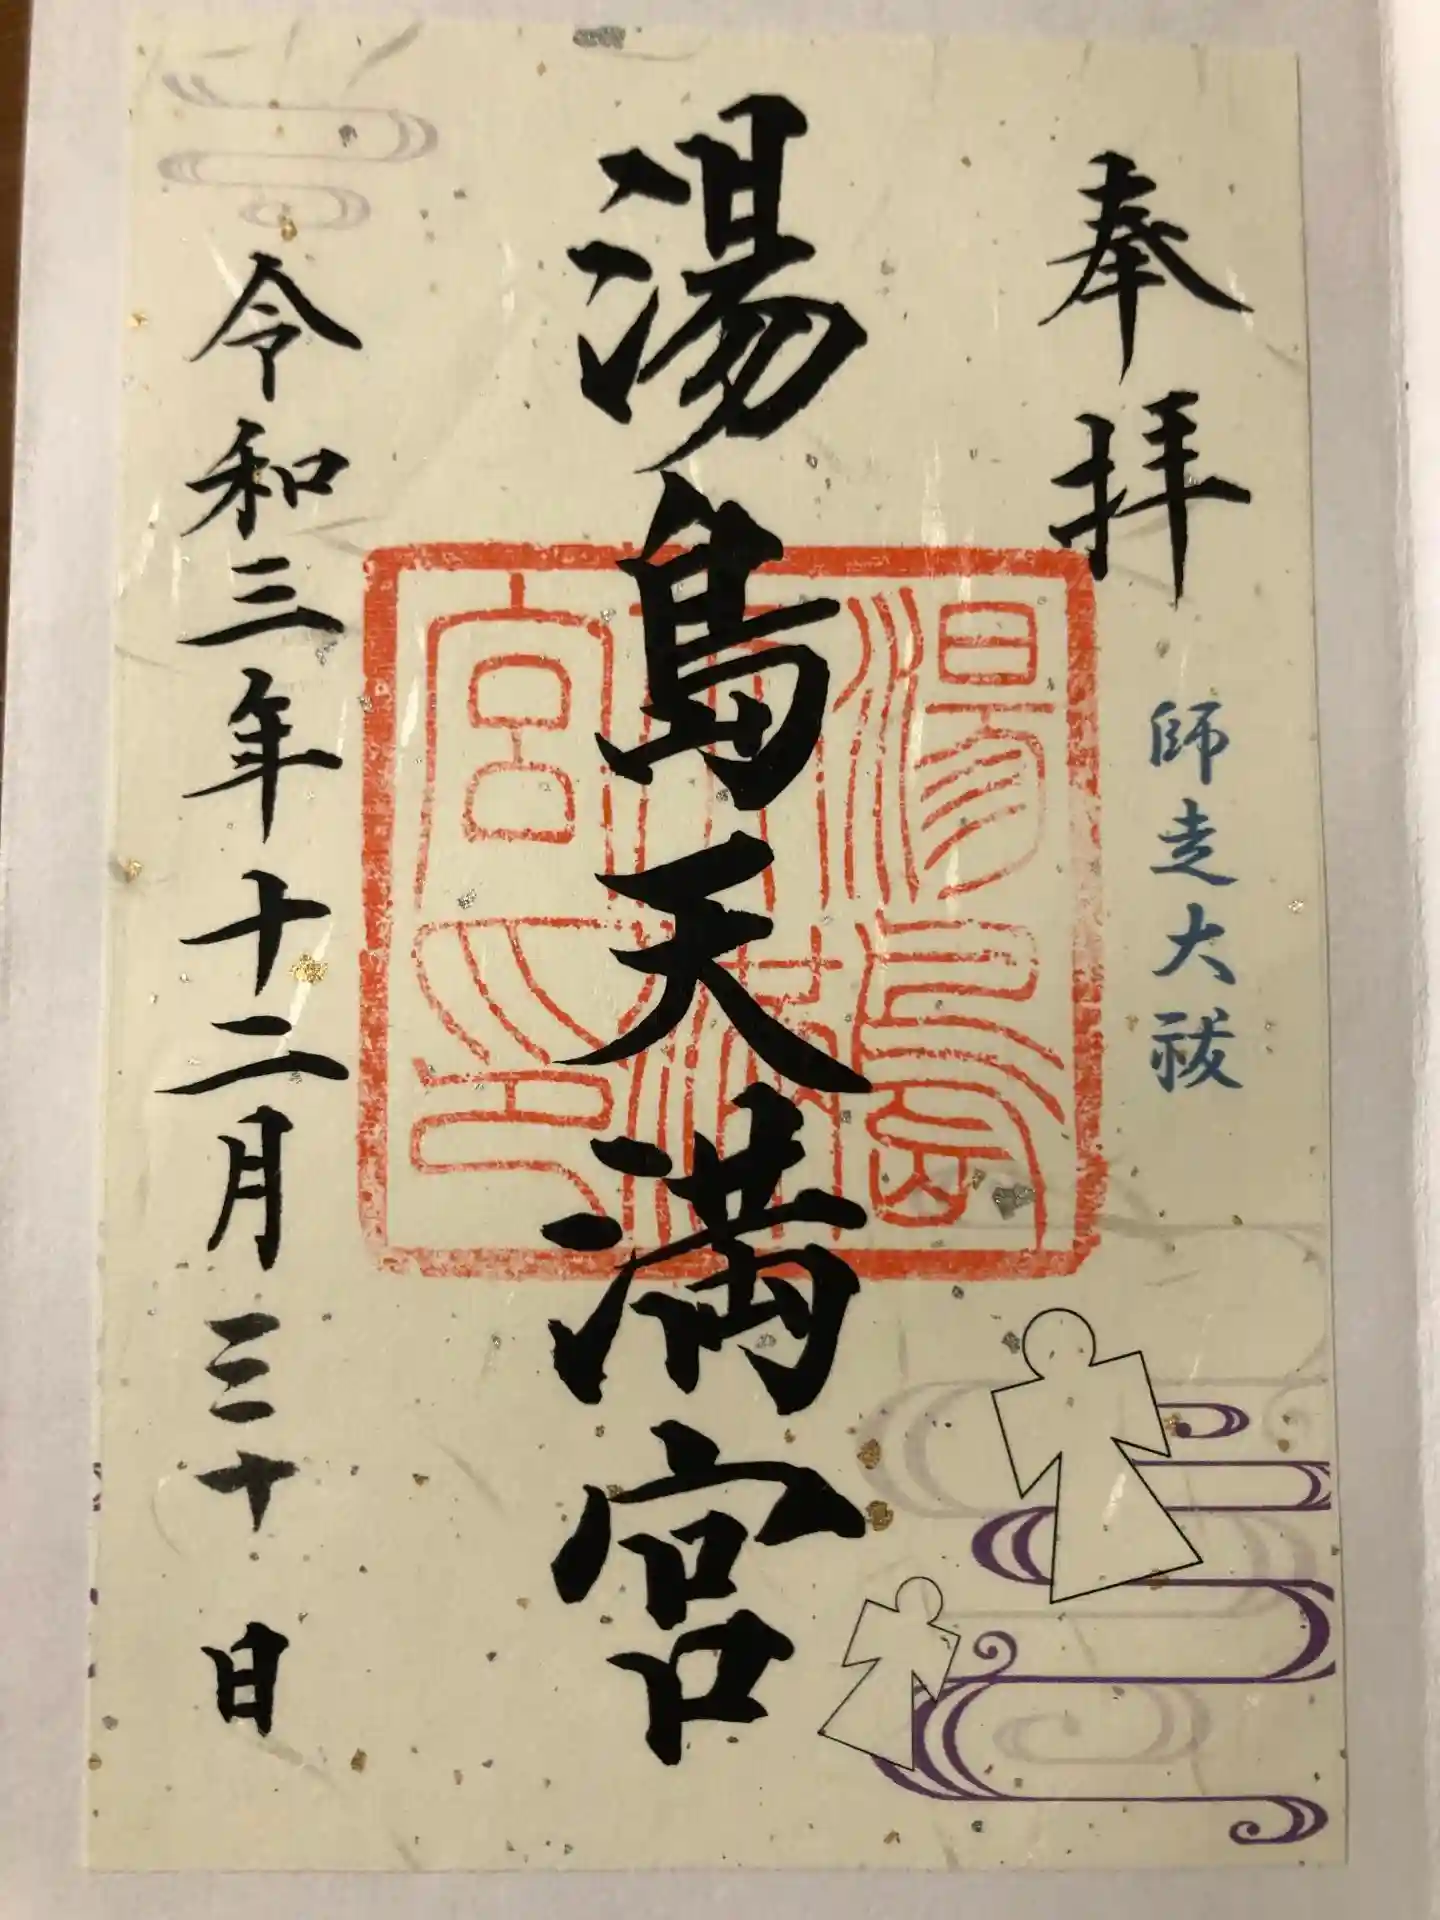 奉拝
師走大祓
湯島天満宮
湯島天神宮印
令和三年十二月三十日